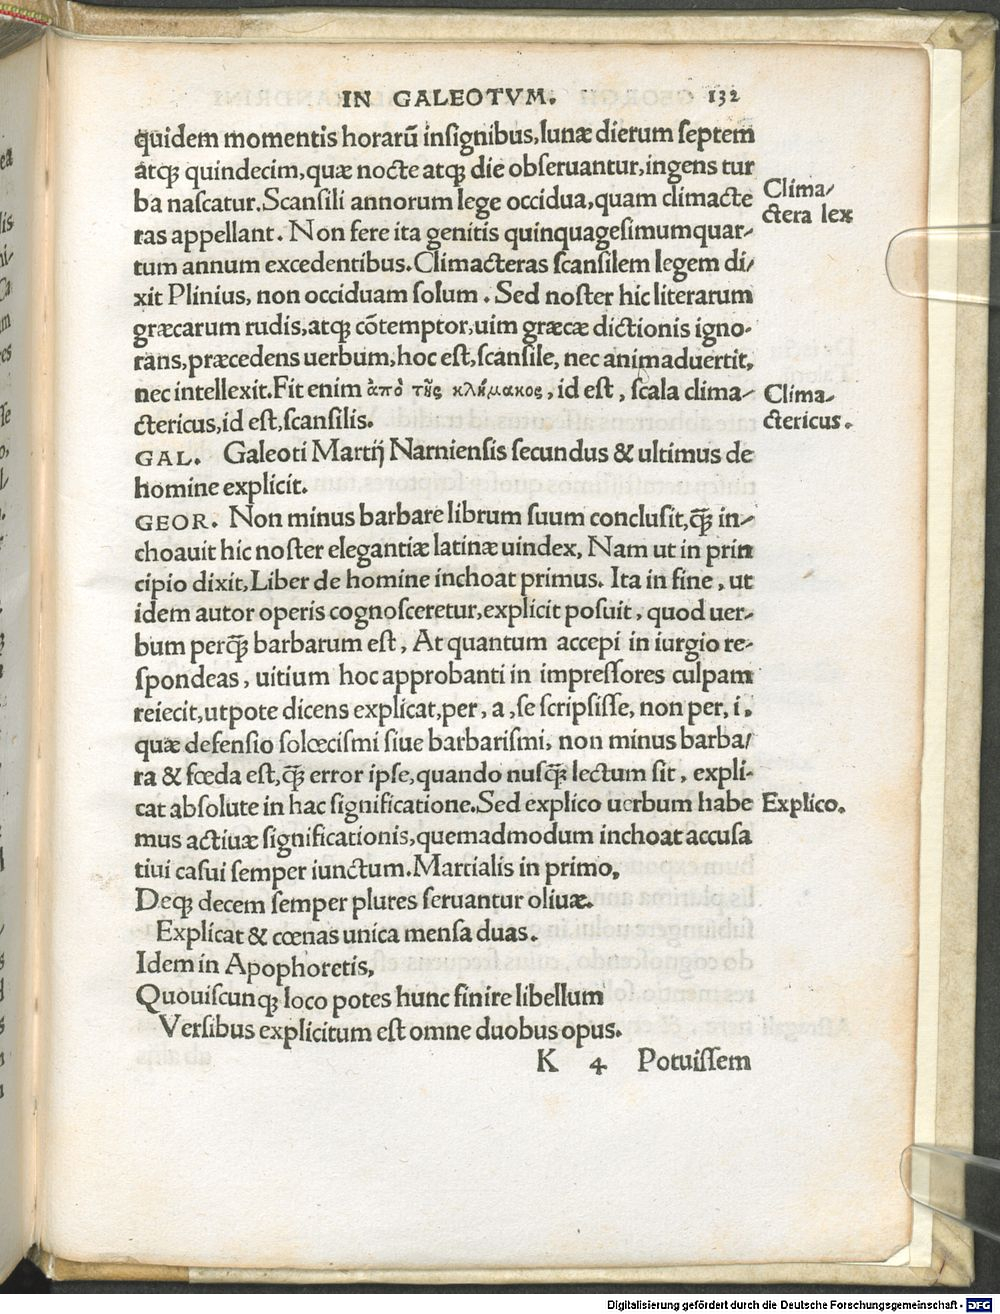 IN GALEOTVM. 132
quidem momentis horarũ insignibus,lunæ dierum septem
atqꝫ quindecim,quæ nocte atqꝫ die obseruantur,ingens tur
ba nascatur.Scansili annorum lege occidua,quam climacte
ras appellant. Non fere ita genitis quinquagesimumquar-
tum annum excedentibus.Climacteras scansilem legem di/
xit Plinius, non occiduam solum. Sed noster hic literarum
græcarum rudis,atqꝫ cõtemptor,uim græcæ dictionis igno-
rans,præcedens uerbum,hoc est,scansile, nec animaduertit,
nec intellexit.Fit enim ἀπὸ τῆς κλήμακος, id est, scala clima-
ctericus,id est,scansilis.
GAL. Galeoti Martij Narniensis secundus & ultimus de
homine explicit.
GEOR. Non minus barbare librum suum conclusit,qꝫ̃ in-
choauit hic noster elegantiæ latinæ uindex, Nam ut in prin
cipio dixit,Liber de homine inchoat primus. Ita in fine, ut
idem autor operis cognosceretur,explicit posuit, quod uer-
bum perqꝫ̃ barbarum est, At quantum accepi in iurgio re-
spondeas, uitium hoc approbanti in impressores culpam
reiecit,utpote dicens explicat,per, a, se scripsisse, non per, i.
quæ defensio solœcismi siue barbarismi, non minus barba/
ra & fœda est,qꝫ̃ error ipse,quando nusqꝫ̃ lectum sit, expli-
cat absolute in hac significatione.Sed explico uerbum habe
mus actiuæ significationis,quemadmodum inchoat accusa
tiui casui semper iunctum.Martialis in primo,
Deqꝫ decem semper plures seruantur oliuæ.
Explicat & cœnas unica mensa duas.
Idem in Apophoretis,
Quouiscunqꝫ loco potes hunc finire libellum
Versibus explicitum est omne duobus opus.
K 4 Potuissem
Clima/
ctera lex
Clima-
ctericus.
Explico.
Digitalisierung gefördert durch die Deutsche Forschungsgemeinschaft - DFG